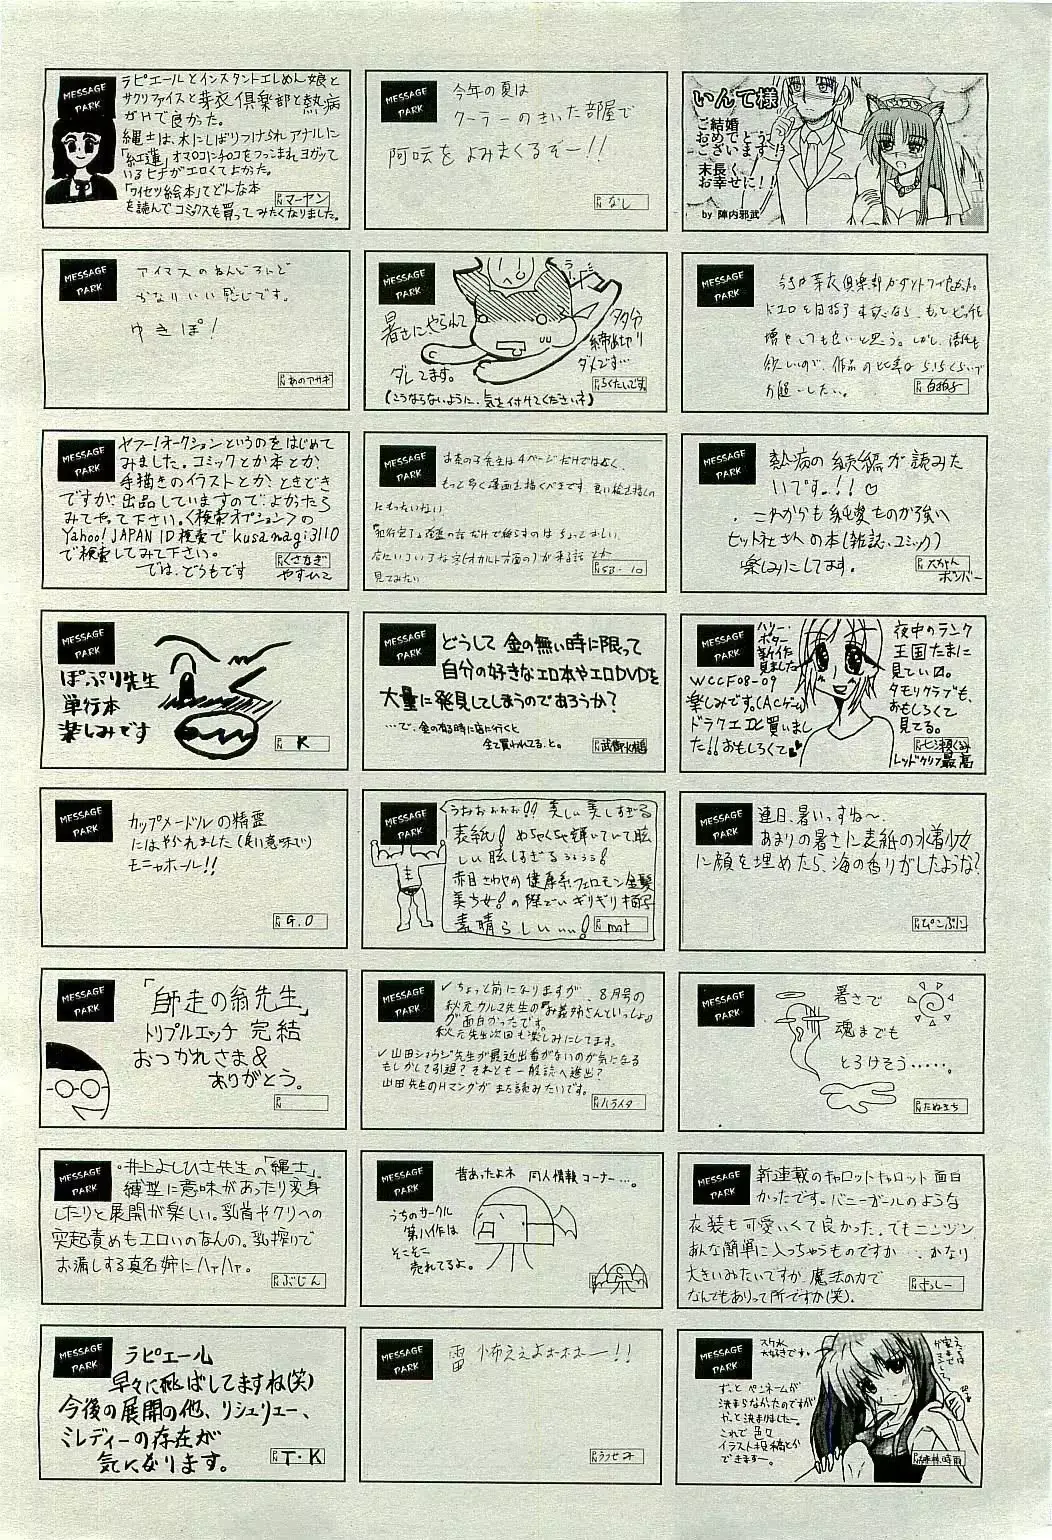 MESSAGE PARK
ラピエールとインスタントエレめん娘と
サクリファイスと芽衣倶楽部と熱病
がHで良かった。
縄士は、木にしばりつけられアナルに
「紅蓮」オマ○コにチ○コをつっこまれヨガッて
いるヒナがエロくてよかった。
「ワイセツ絵本」でどんな本
を読んでコミックスを買ってみたくなりました。
PN マーヤン
MESSAGE PARK
今年の夏は
クーラーのきいた部屋で
阿吽をよみまくるぞー!!
PN なし
いんて様
ご結婚
おめでとう
ございます!
末長く
お幸せに!!
by 陣内邪武
MESSAGE PARK
アイマスのねんどろいど
かなりいい感じです。
ゆきぽ!
PN あのアサギ
MESSAGE PARK
暑さにやられて
ダレてます。
タタ"分
締め切り
ダメです…
PN らくたいです
(こうならないように、気を付けてくださいネ)
MESSAGE PARK
今号の芽衣倶楽部がダントツで良かった。
ドエロを目指すなら、もっとピッチを
増やしても良いと思う。しかし、活気も
欲しいので、作品の比率は5:5くらいで
お願いしたい。
PN 白拍子
MESSAGE PARK
ヤフー!オークションというのをはじめて
みました。コミックとか本とか、
手描きのイラストとか、ときどき
ですが、出品していますので、よかったら
みてやって下さい。<検索オプション>の
Yahoo! JAPAN ID検索でkusanagi3110
で検索してみて下さい。
では、どうもです
PN くさなぎ
やすひこ
MESSAGE PARK
お茶の子先生は4ページだけではなく、
もっと多く漫画を描くべきです。良い絵を描くの
にもったいない。
見てみたい
PN SB-10
MESSAGE PARK
熱病の続編が読みた
いです。!!♡
これからも純愛ものが強い
ヒット社さんの本(雑誌、コミック)
楽しみにしてます。
PN
ボンバー
MESSAGE PARK
ぽぷり先生
単行本
楽しみです
PN K
MESSAGE PARK
どうして金の無い時に限って
自分の好きなエロ本やエロDVDを
大量に発見してしまうのであろうか?
…で、金の有る時に店に行くと
全て買われてる、と。
PN 武御火槌
MESSAGE PARK
ハリー・
ポター
新作
見ました
WCCF08-09
楽しみです。(ACゲーム)
ドラクエIXと買いまし
た!!おもしろくて
夜中のランク
王国たまに
見ている。
タモリクラブも、
おもしろくて
見てる。
PN 七瀬くるみ
レッドクリフ最高
MESSAGE PARK
カップメードルの精霊
にはやられました(良い意味で)
モニャホール!!
PN G.O
MESSAGE PARK
うおおぉぉぉ!!美しい美しすぎる
表紙!めちゃくちゃ輝いていて眩
しい眩しすぎるぅぅぅぅ!
赤目さわやか健康系フェロモン金髪
美少女!の際どいギリギリ描写
素晴らしいぃぃ!
PN mat
MESSAGE PARK
連日、暑いっすね~、
あまりの暑さに表紙の水着少女
に顔を埋めたら、海の香りがしたような?
PN ぴこぷに
MESSAGE PARK
「師走の翁先生」
トリプルエッチ 完結
おつかれさま&
ありがとう。
PN
MESSAGE PARK
✓ちょっと前になりますが、8月号の
秋元カルマ先生の『お義姉さんといっしょ』
が面白かったです。
秋元先生次回も楽しみにしてます。
✓山田ショウジ先生が最近出番がないのが気になる
もしかして引退?それとも一般誌へ進出?
山田先生のHマンガがまた読みたいです。
PN ハライタ
MESSAGE PARK
暑さで
魂までも
とろけそう……。
PN たぬきち
MESSAGE PARK
・井上よしひさ先生の「縄士」。
縛型に意味があったり変身
したりと展開が楽しい。乳首やクリへの
突起責めもエロいのなんの。乳搾りで
お漏しする真名姉にハァハァ。
PN ぶじん
MESSAGE PARK
昔あったよネ 同人情報コーナー…。
うちのサークル
第八作は
そこそこ
売れてるよ。
PN
MESSAGE PARK
新連載のキャロットキャロット面白
かったです。バニーガールのような
衣装も可愛いくて良かった。でもニンジン
あんな簡単に入っちゃうものですか…かなり
大きいみたいですが、魔法の力で
なんでもありって所ですか(笑)。
PN さっしー
MESSAGE PARK
ラピエール
早々に飛ばしてますね(笑)
今後の展開の他、リシュリュー、
ミレディーの存在が
気になります。
PN T・K
MESSAGE PARK
雷 怖ええよォホホー!!
PN うつせみ
MESSAGE PARK
スク水
大好きです。
ずっとペンネームが
決まらなかったのですが
やっと決まりましたー。
これで色々
イラスト投稿とか
できますー。